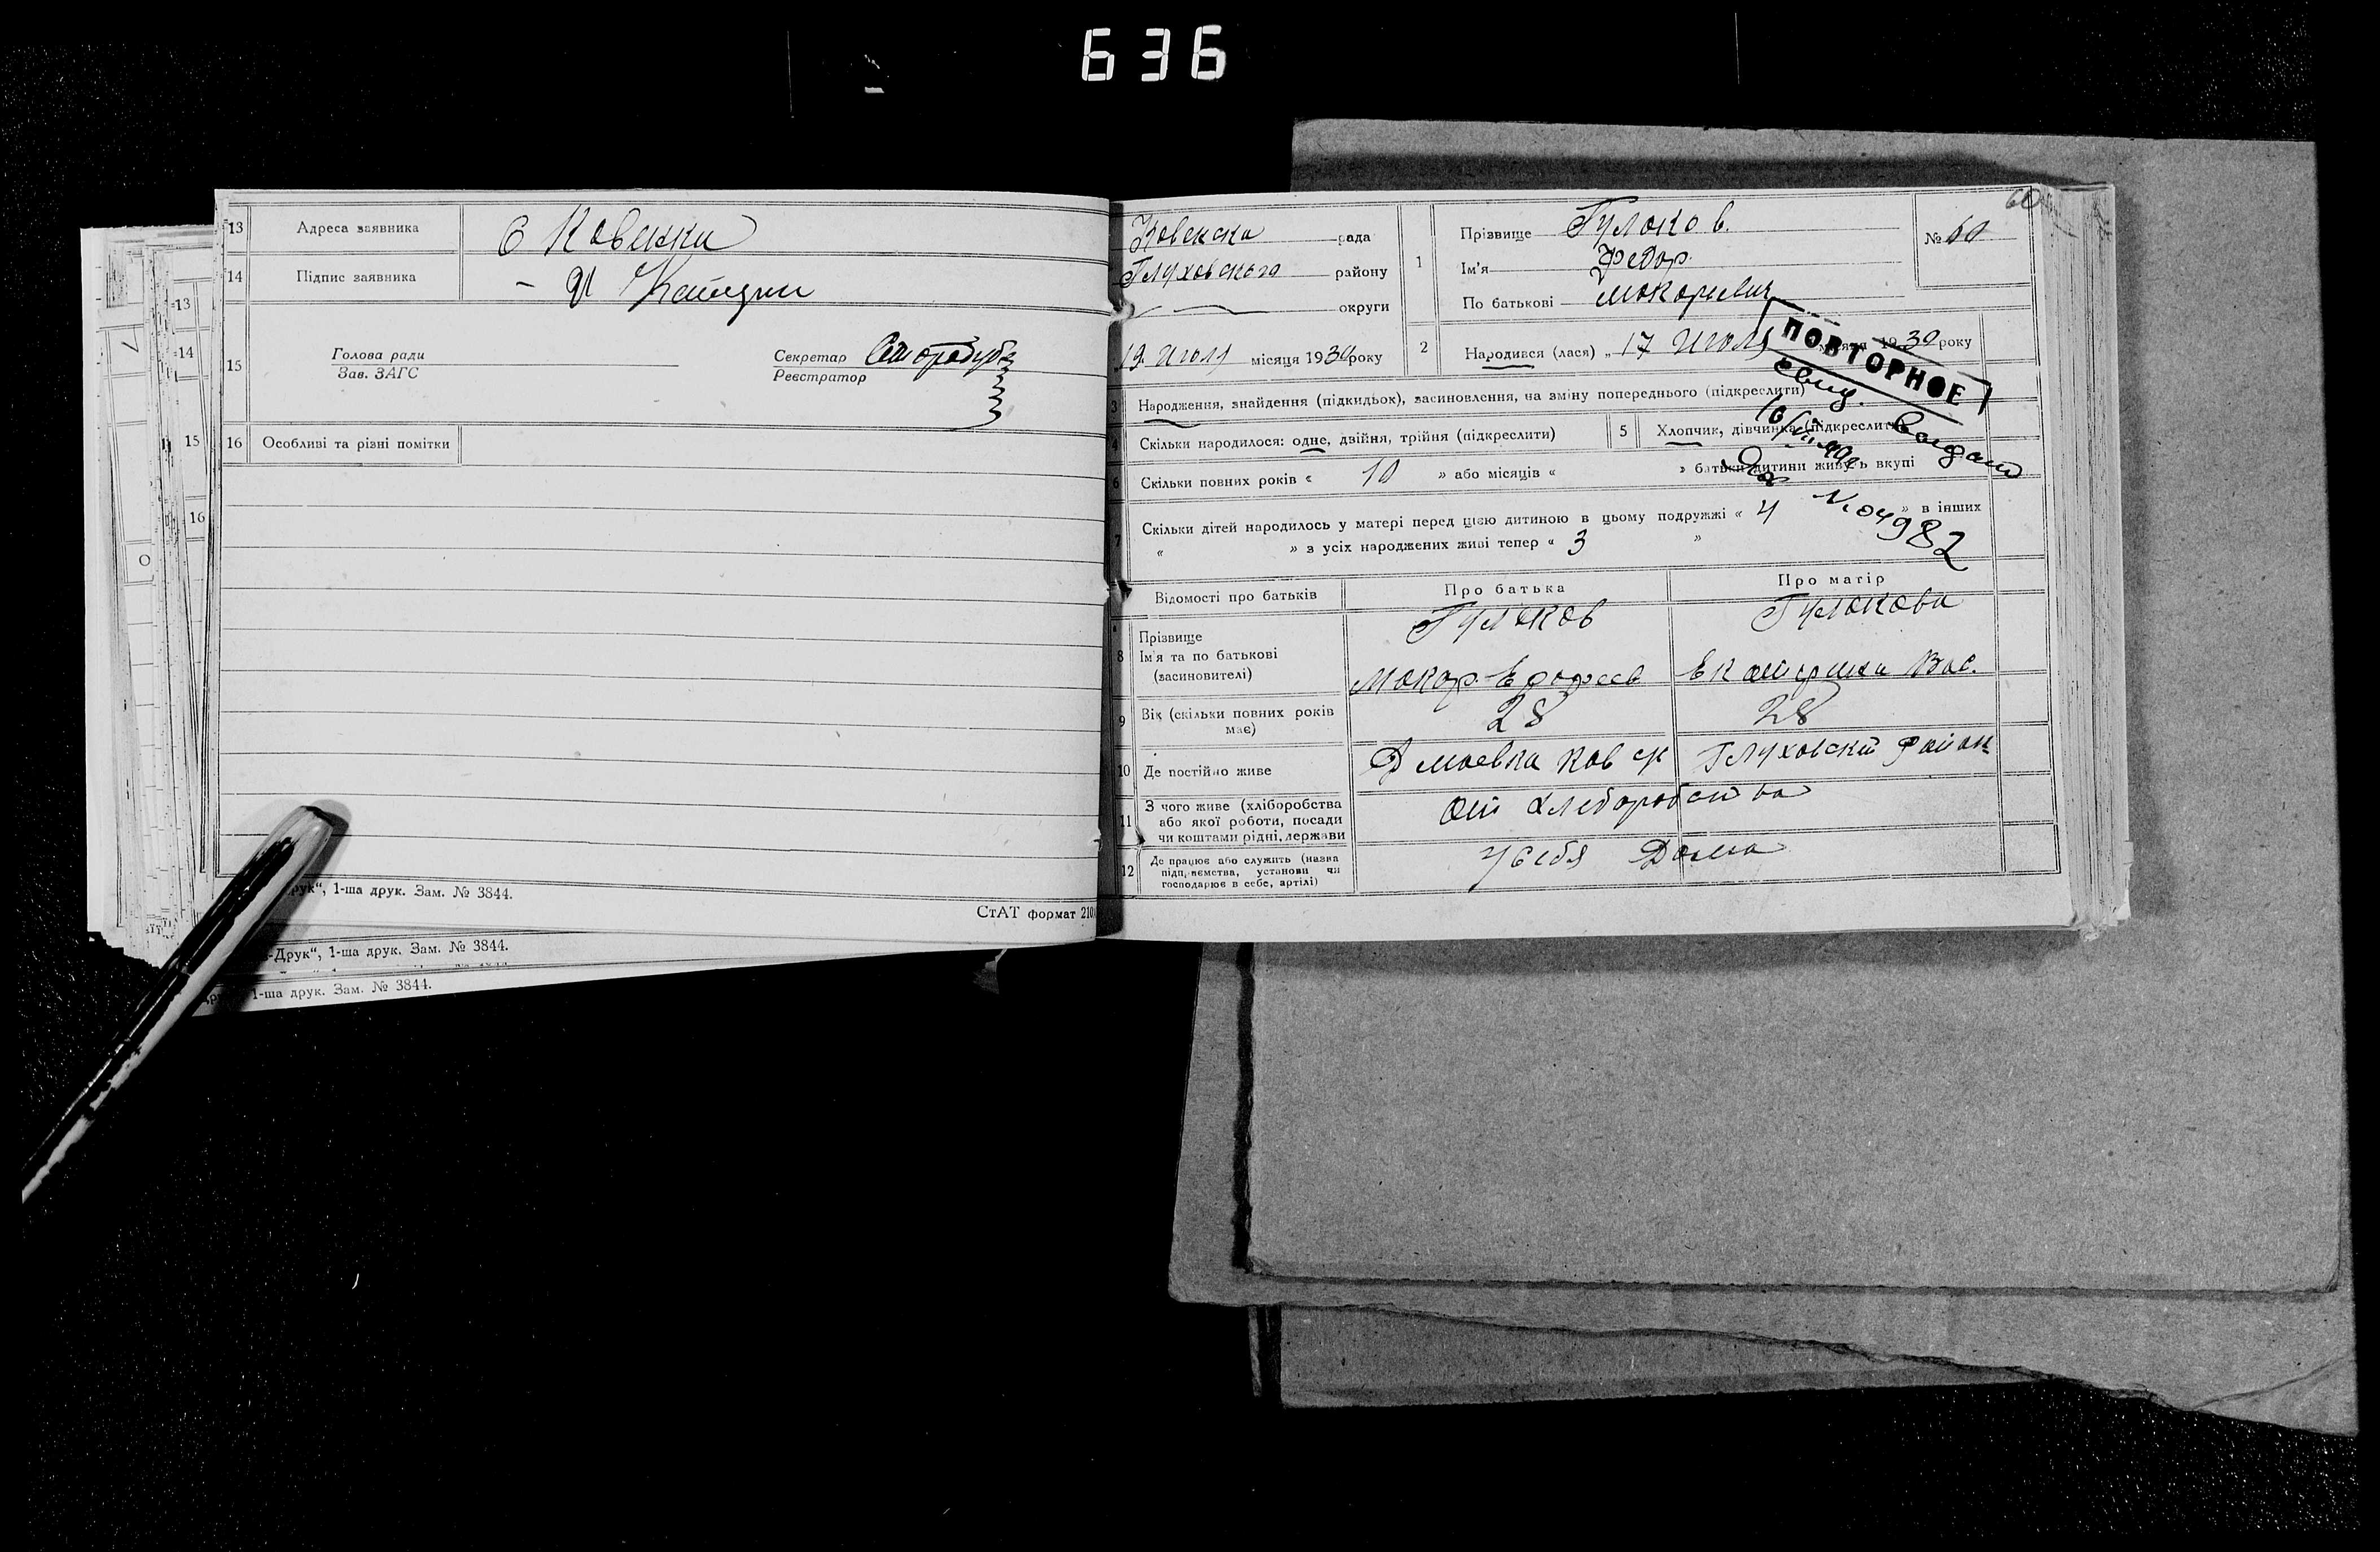 636
13 Адреса заявника С Ковенки
14 Підпис заявника
15 Голова ради
Зав. ЗАГС
Секретар
Реєстратор
16 Особливі та різні помітки
13
14
15
16
1-ша друк. Зам. № 3844.
СтАТ формат 210
-Друк“, 1-ша друк. Зам. № 3844.
1-ша друк. Зам. № 3844.
60
Ковенска рада
Глуховського району
округи
19 Июля місяця 1930 року
1 Прізвище Гулюков.
Ім'я Федор
По батькові Мокориевич
№ 60
2 Народився (лася) „ 17 Июля 1930 року
ПОВТОРНОЕ
свид. выдано
№ 04982
3 Народження, знайдення (підкидьок), засиновлення, на зміну попереднього (підкреслити)
4 Скільки народилося: одне, двійня, трійня (підкреслити)
5 Хлопчик, дівчинка (підкреслити)
6 Скільки повних років « 10 » або місяців « » батьки дитини живуть вкупі
7 Скільки дітей народилось у матері перед цією дитиною в цьому подружжі « 4 » в інших
« » з усіх народжених живі тепер « 3 »
Відомості про батьків Про батька Про матір
8 Прізвище Гулюков Гулюкова
Ім'я та по батькові
(засиновителі) Мокар Ерофеев Екатерина Вас.
9 Вік (скільки повних років має) 28 28
10 Де постійно живе Глуховский район
11 З чого живе (хліборобства
або якої роботи, посади
чи коштами рідні, держави От хлеборобства
12 Де працює або служить (назва
підприємства, установи чи
господарює в себе, артілі) У себя Дома